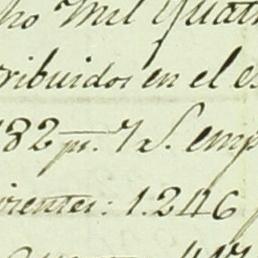 ho Mil Quatr
ribuidos en el e
182 ps. 7 s. emp
irentes: 1.246